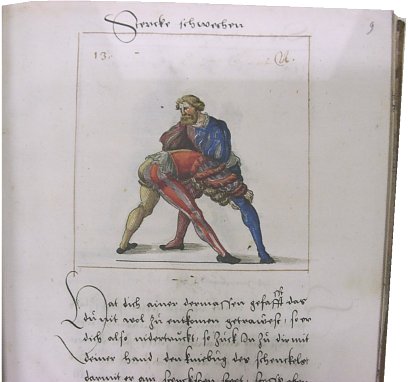 Stercke schwechen
9
13.
Hat dich ainer dermassen gefasst das
du nit wol zu entkomen getrawest, so er
dich also nidertruckt, so zuck In zu dir mit
deiner hand, den kniebug der schenckele
darmit er am